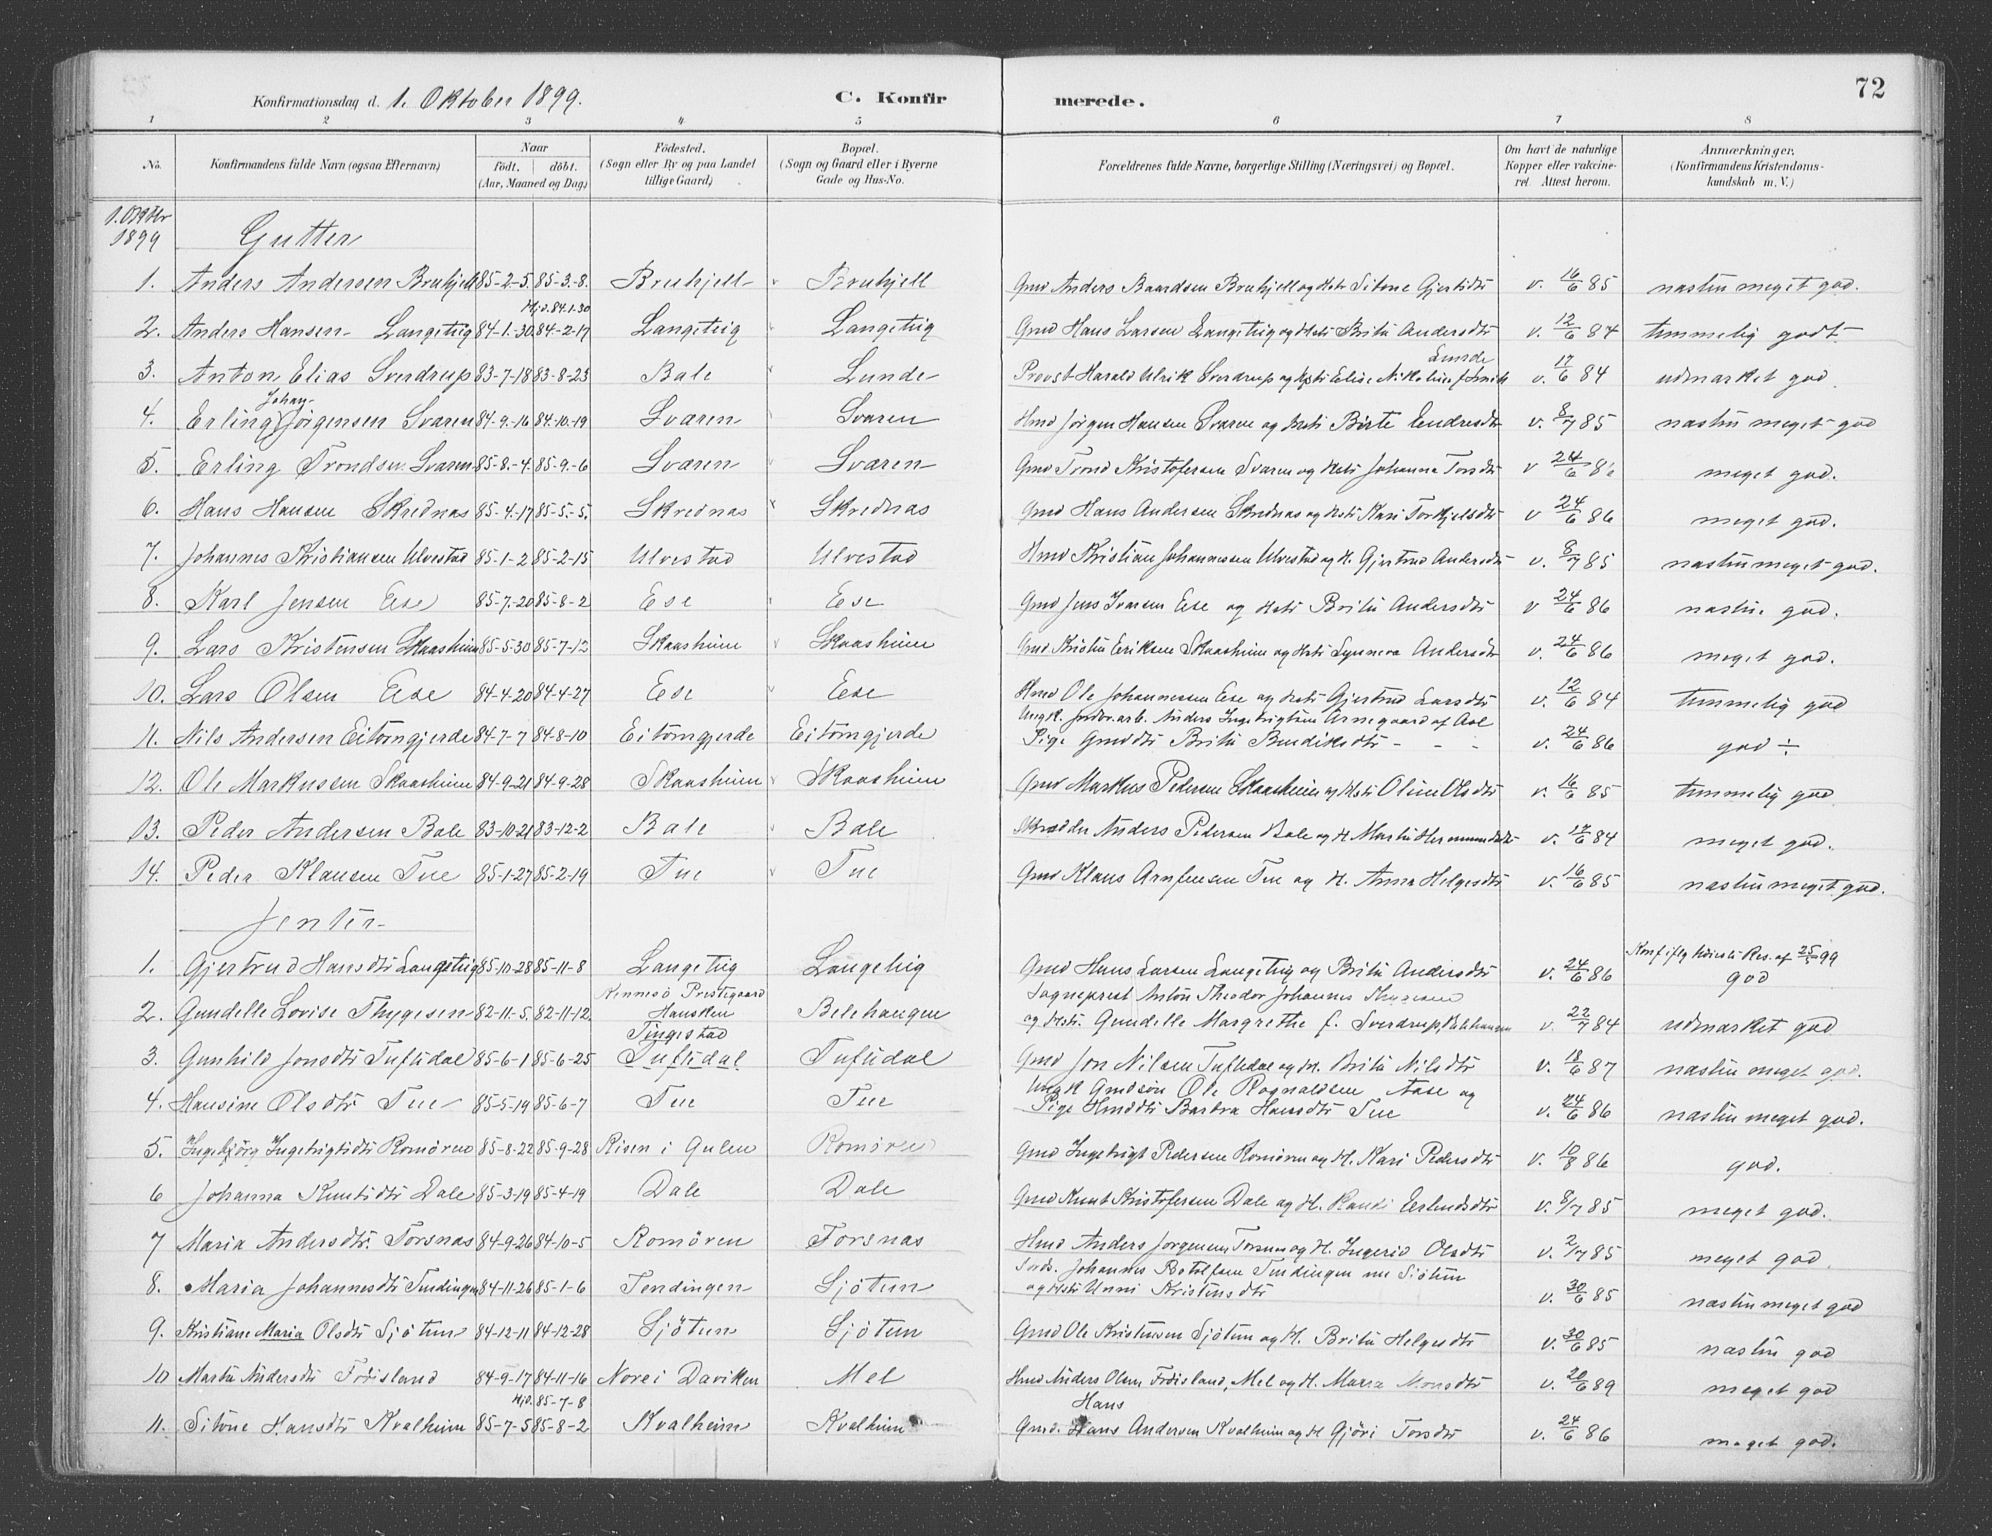 72
Konfirmationsdag d. 1. Oktober 1899. C. Konfirmerede.
1 2 3 4 5 6 7 8
No. Konfirmandens fulde Navn (ogsaa Efternavn) Naar födt. döbt. (Aar, Maaned og Dag) Födested. (Sogn eller By og paa Landet tillige Gaard) Bopæl. (Sogn og Gaard eller i Byerne Gade og Hus-No. Forældrenes fulde Navne, borgerlige Stilling (Næringsvei) og Bopæl. Om havt de naturlige Kopper eller vakcineret. Attest herom. Anmærkninger. (Konfirmandens Kristendomskundskab m. V.)
1. Oktbr 1899 Gutter
1. Anders Andersen Bruhjell 85-2-5. 85-3-8. Bruhjell Bruhjell Gmd Anders Baardsen Bruhjell og Hst. Sitone Gjertsdtr v. 16/6 85 næsten meget god.
Hjd. 84.1.30
2. Anders Hansen Langeteig 84-1-30 84-2-17 Langeteig Langeteig Gmd Hans Larsen Langeteig og Hst. Brita Andersdtr v. 12/6 84 temmelig godt
Lunde
3. Anton Elias Sverdrup 83-7-18 83-8-23 Bale Lunde Provst Harald Ulrik Sverdrup og Hst. Elise Nikoline f. Smith v. 17/6 84 udmærket god
Johan
4. Erling Jörgensen Sværen 84-9-16 84-10-19 Sværen Sværen Hmd Jörgen Hansen Sværen og Hst. Birte Endresdtr v. 8/7 85 næsten meget god
5. Erling Trondsen Sværen 85-8-4. 85-9-6 Sværen Sværen Gmd Trond Kristofersen Sværen og Hst. Johanna Torsdtr v 24/6 meget god.
6. Hans Hansen Skrednæs 85-4-17 85-5-5. Skrednæs Skrednæs Gmd Hans Andersen Skrednæs og Hst. Kari Torkjelsdtr v 24/6 86 meget god.
7. Johannes Kristiansen Ulvestad 85-1-2 85-2-15 Ulvestad Ulvestad Hmd Kristian Johannessen Ulvestad og H. Gjertrud Andersdtr v. 8/7 85 næsten meget god.
8. Karl Jensen Ese 85-7-20 85-8-2 Ese Ese Gmd Jens Jensen Ese og Hst. Brita Andersdtr v 24/6 86 næsten god.
9. Lars Kristensen Skaasheim 85-5-30 85-7-12 Skaasheim Skaasheim Gmd Kristen Eriksen Skaasheim og Hst. Synneva Andersdtr v. 24/6 86 meget god.
10. Lars Olsen Ese 84-4-20 84-4-27 Ese Ese Hmd Ole Johannessen Ese og Hst. Gjertrud Larsdtr v. 12/6 84 temmelig god
Ungk. jordarb. Anders Ingebrigtsen Arnegaard af Aal
11. Nils Andersen Eitorngjerde 84-7-7 84-8-10 Eitorngjerde Eitorngjerde Pige Gmdstr Brita Bendiksdtr - - - v. 24/6 86 god ÷
12. Ole Markussen Skaasheim 84-9-21 84-9-28 Skaasheim Skaasheim Gmd Markus Pedersen Skaasheim og Hst. Oline Olsdtr v. 16/6 85 temmelig god
13. Peder Andersen Bale 83-10-21 83-12-2 Bale Bale Skrædder Anders Pedersen Bale og H. Marta Hermundsdtr v. 17/6 84 meget god.
14. Peder Klausen Tue 85-1-27 85-2-19 Tue Tue Gmd Klaus Arnfinsen Tue og H. Anna Helgesdtr v. 16/6 85 næsten meget god.
Jenter
1. Gjertrud Hansdtr Langeteig 85-10-28 85-11-8 Langeteig Langeteig Gmd Hans Larsen Langeteig og Brita Andersdtr v. 24/6 86 Konf. iflg. Res. af 99 god
Kinnesö Prestegaard Sogneprest Anton Theodor Johannes Thygesen
2. Gundelle Lovise Thygesen 82-11-5. 82-11-12. Hansken Belehaugen og Hst. Gundelle Margrethe f. Sverdrup, Belehaugen v. 22/7 84 udmærket god
Tingestad
3. Gunhild Jonsdtr Tuftedal 85-6-1 85-6-25 Tuftedal Tuftedal Gmd Jon Nilsen Tuftedal og H. Brita Nilsdtr v. 18/6 87 næsten meget god.
Ungk Gmdsön Ole Rognaldsen Aase og
4. Hansine Olsdtr Tue 85-5-19 85-6-7 Tue Tue Pige Hmdstr Barbra Hansdtr Tue v. 24/6 86 næsten meget god.
5. Ingebjörg Ingebrigtsdtr Romören 85-8-22 85-9-28 Risen i Gulen Romören Gmd Ingebrigt Pedersen Romören og H. Kari Pedersdtr v. 10/8 86 god.
6 Johanna Knutsdtr Dale 85-3-19 85-4-19 Dale Dale Gmd Knut Kristofersen Dale og H. Randi Erlendsdtr v. 8/7 85 meget god.
7 Maria Andersdtr. Torsnæs 84-9-26 84-10-5 Romören Torsnæs Hmd Anders Jörgensen Torsnæs og H. Ingerid Olsdtr v. 2/7 85 meget god.
Johannes Botolfsen Tendingen nu Sjötun
8. Maria Johannesdtr Tendingen 84-11-26 85-1-6 Tendingen Sjötun og Hst. Unni Kristensdtr v. 30/6 85 næsten meget god
9. Kristiane Maria Olsdtr Sjötun 84-12-11 84-12-28 Sjötun Sjötun Gmd Ole Kristensen Sjötun og H. Brita Helgesdtr v. 30/6 85 næsten god
10 Marta Andersdtr Fröisland 84-9-17 84-11-16 Nore i Daviken Mel Hmd Anders Olsen Fröisland, Mel og H. Maria Monsdtr v. 20/6 89 meget god
Hjd. 85-7-8 Hans
11. Sitone Hansdtr Kvalheim 85-7-5 85-8-2 Kvalheim Kvalheim Gmd. Hans Andersen Kvalheim og H Gjöri Torsdtr v. 24/6 86 meget god.